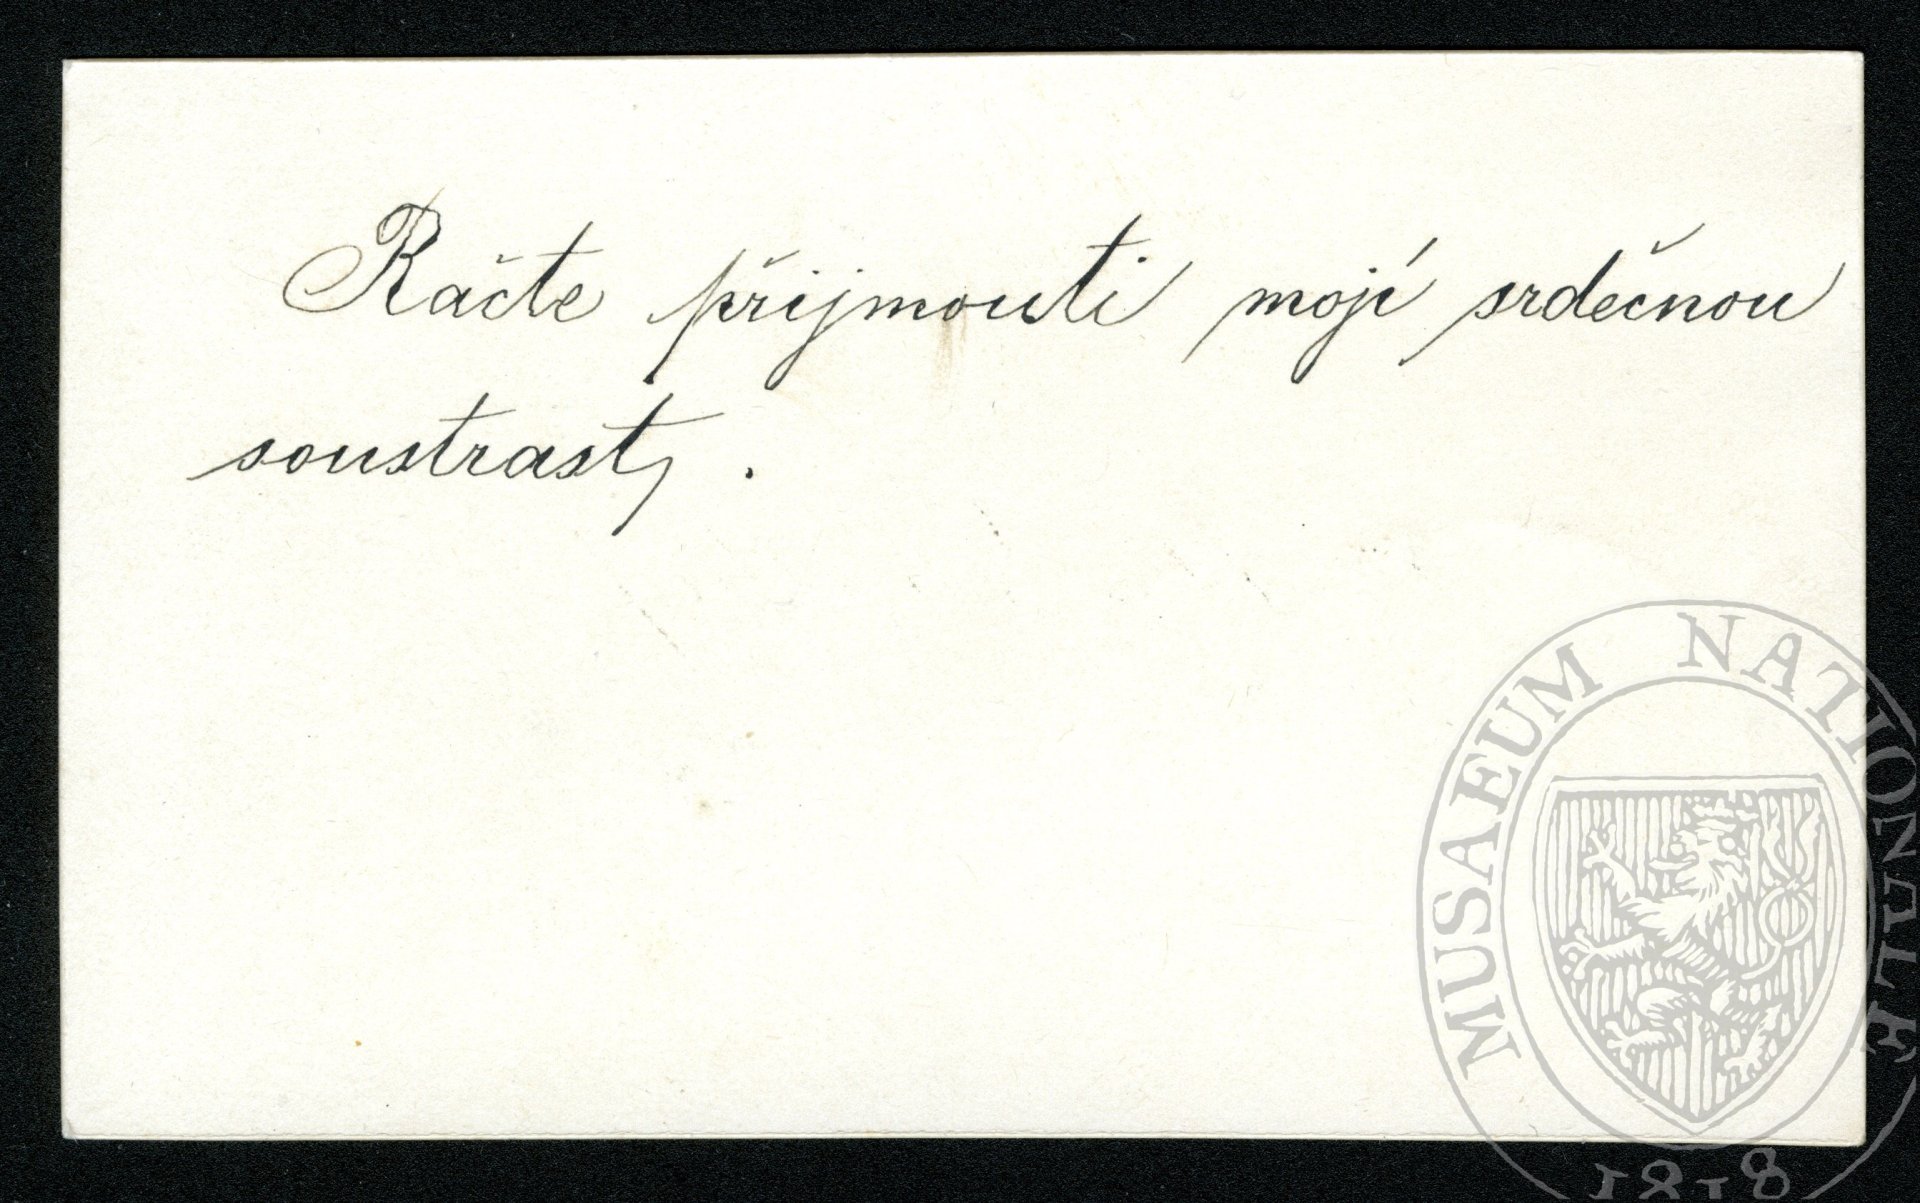 Račte přijmouti mojí srdečnou
soustrast.
MUSAEUM NATIONALE
1818